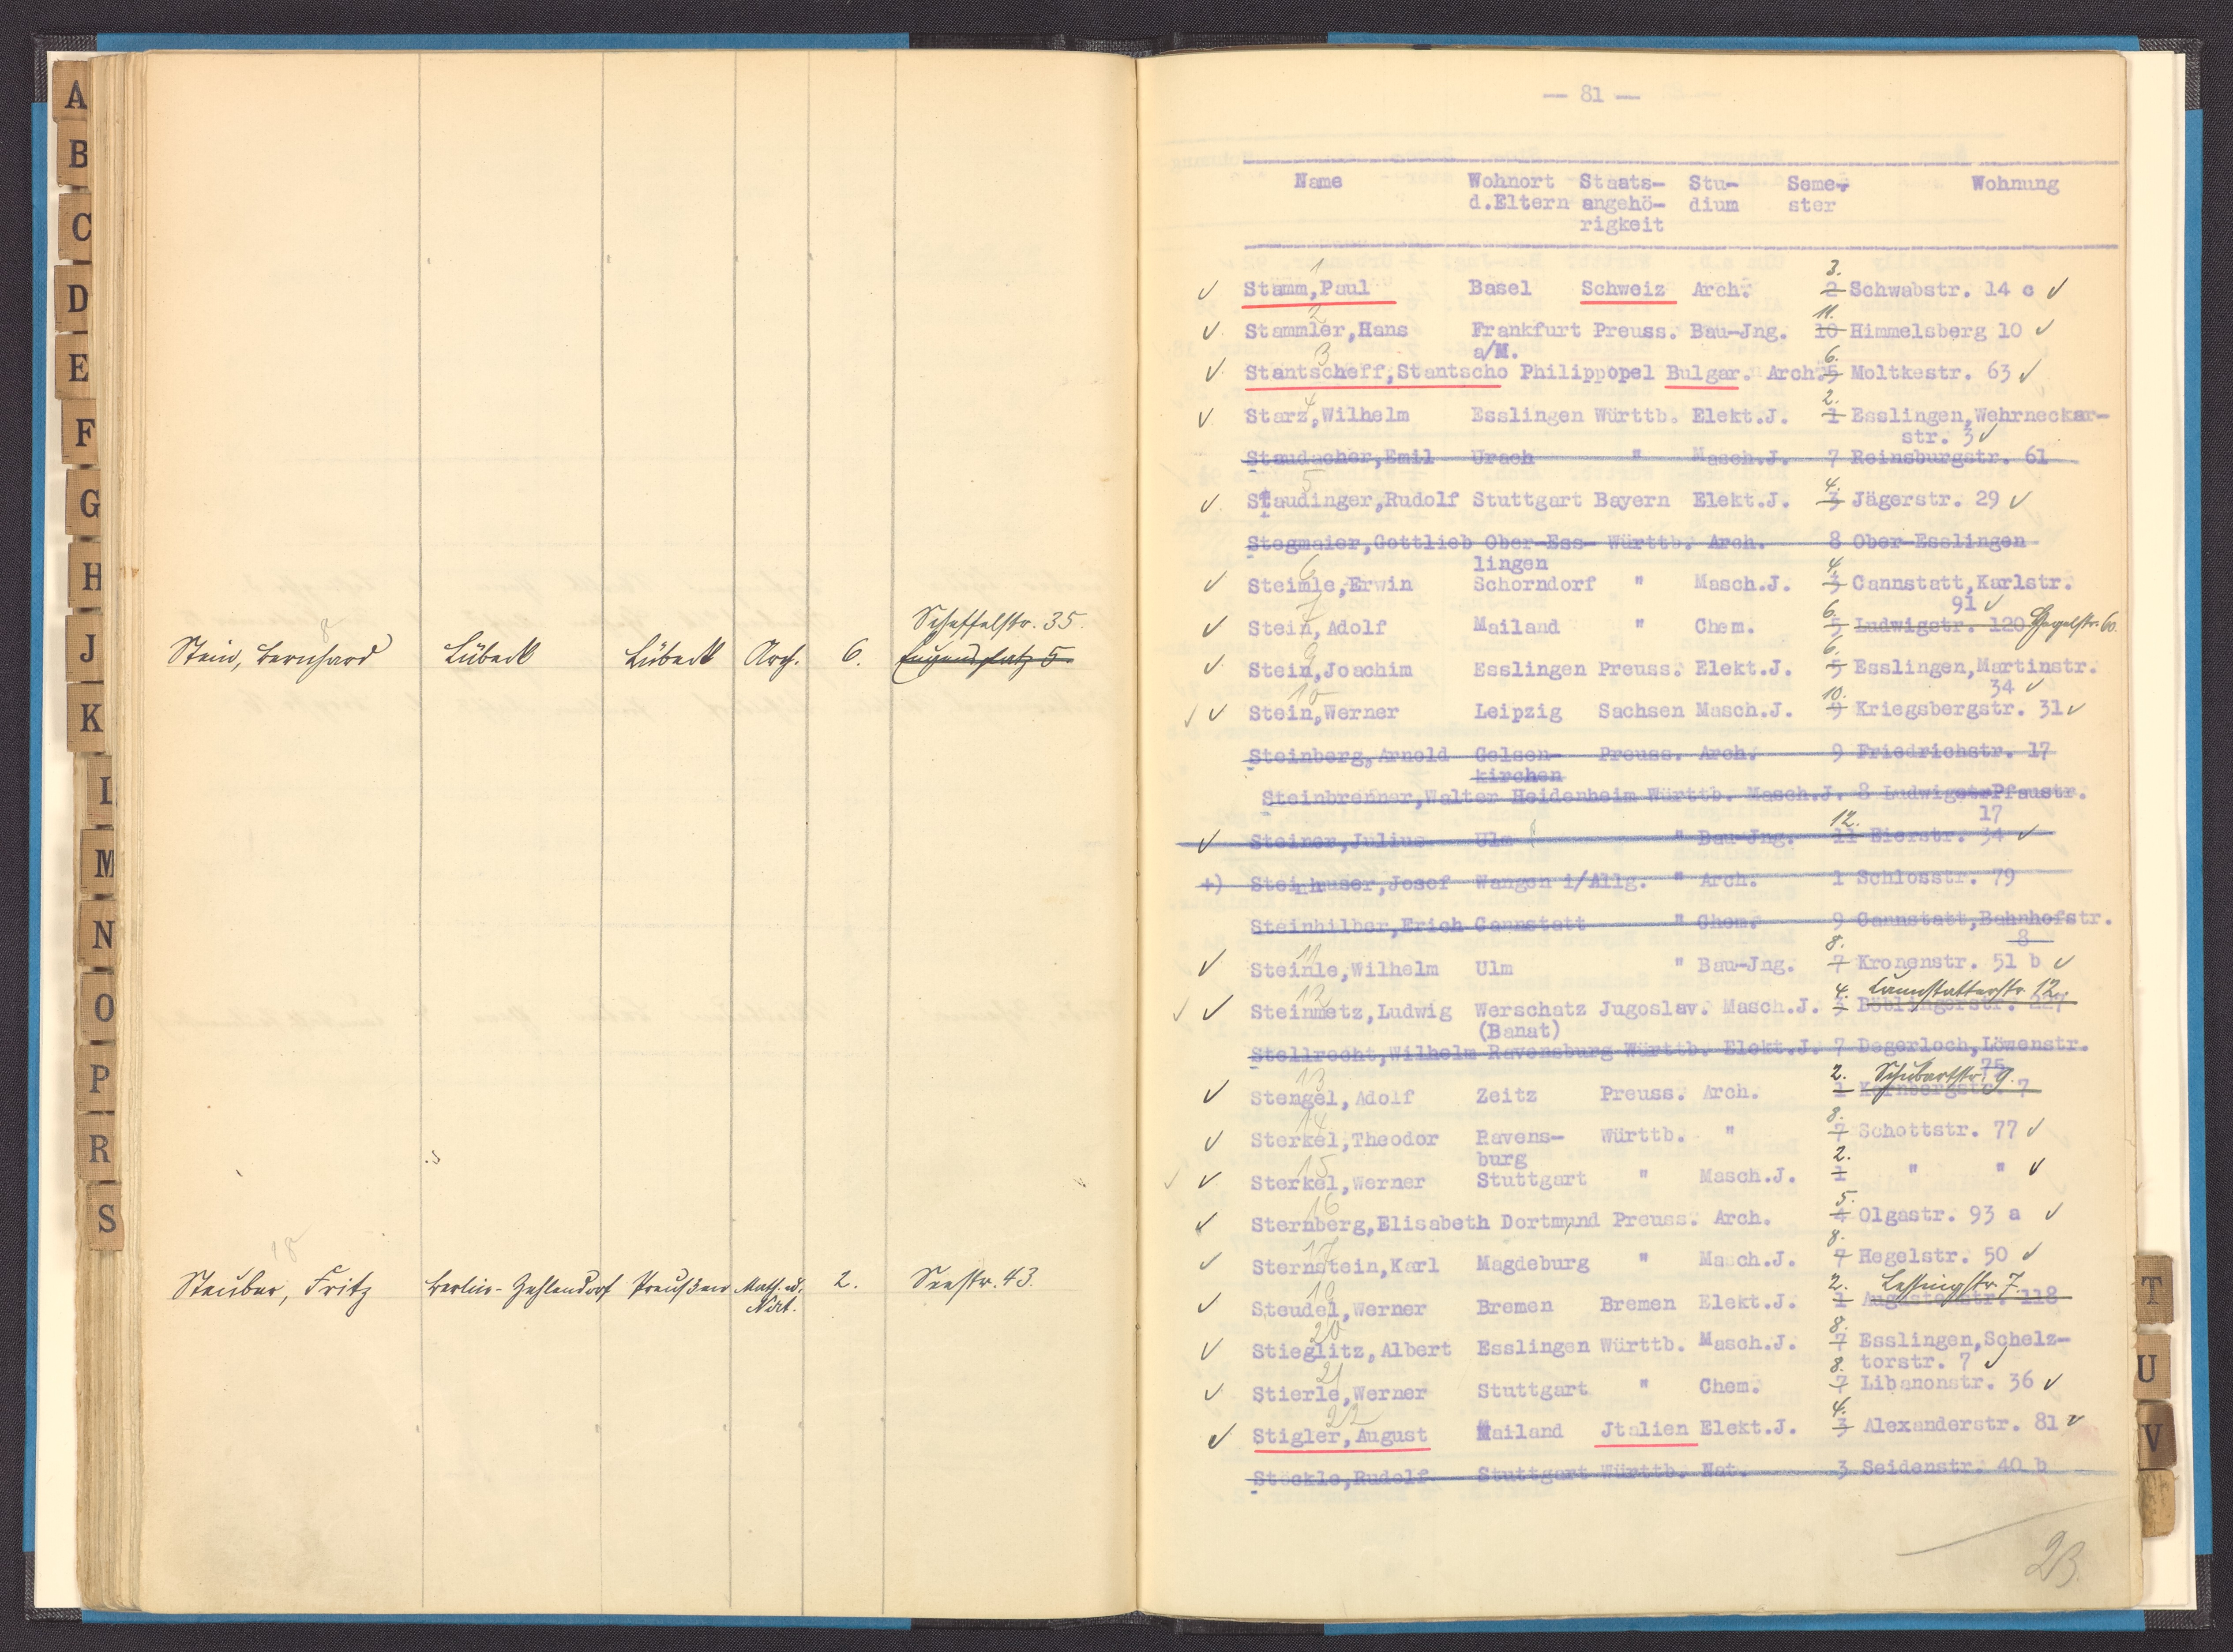 A
B
C
D
E
F
G
H
J
K
L
M
N
O
P
R
S
8
Scheffelstr. 35.
Stein, Bernhard Lübeck Lübeck Arch. 6. Eugensplatz 5.
18
Steuber, Fritz Berlin-Zehlendorf Preußen Math. u. 2. Seestr. 43.
Nat.
— 81 —
Name Wohnort Staats- Stu- Seme- Wohnung
d.Eltern angehö- dium ster
rigkeit
1 3.
✓ Stamm,Paul Basel Schweiz Arch. 2 Schwabstr. 14 c ✓
2 11.
✓ Stammler,Hans Frankfurt Preuss. Bau-Jng. 10 Himmelsberg 10 ✓
3 a/M. 6.
✓ Stantscheff,Stantscho Philippopel Bulgar. Arch. 5 Moltkestr. 63 ✓
4 2.
✓ Starz,Wilhelm Esslingen Württb. Elekt.J. 1 Esslingen,Wehrneckar-
str. 3 ✓
Staudacher,Emil Urach " Masch.J. 7 Reinsburgstr. 61
5 4.
✓ Staudinger,Rudolf Stuttgart Bayern Elekt.J. 3 Jägerstr. 29 ✓
Stegmaier,Gottlieb Ober-Ess- Württb. Arch. 8 Ober-Esslingen
6 lingen 4.
✓ Steimle,Erwin Schorndorf " Masch.J. 3 Cannstatt,Karlstr.
7 6. 91 ✓
✓ Stein,Adolf Mailand " Chem. 5 Ludwigstr. 120 Hegelstr. 60.
9 6.
✓ Stein,Joachim Esslingen Preuss. Elekt.J. 5 Esslingen,Martinstr.
10 10. 34 ✓
✓ ✓ Stein,Werner Leipzig Sachsen Masch.J. 9 Kriegsbergstr. 31 ✓
Steinberg,Arnold Gelsen- Preuss. Arch. 9 Friedrichstr. 17
kirchen
Steinbrenner,Walter Heidenheim Württb. Masch.J. 8 LudwigstrPfaustr.
12. 17
✓ Steiner,Julius Ulm " Bau-Jng. 11 Eierstr. 34 ✓
+) Steinhauser,Josef Wangen i/Allg. " Arch. 1 Schlosstr. 79
Steinhilber,Erich Cannstatt " Chem. 9 Cannstatt,Bahnhofstr.
11 8. 8
✓ Steinle,Wilhelm Ulm " Bau-Jng. 7 Kronenstr. 51 b ✓
12 4. Cannstatterstr. 12.
✓ ✓ Steinmetz,Ludwig Werschatz Jugoslav. Masch.J. 3 Böblingerstr. 227
(Banat)
Stellrecht,Wilhelm Ravensburg Württb. Elekt.J. 7 Degerloch,Löwenstr.
75
13 2. Schubartstr. 9.
✓ Stengel,Adolf Zeitz Preuss. Arch. 1 Kornbergstr. 7
14 8.
✓ Sterkel,Theodor Ravens- Württb. " 7 Schottstr. 77 ✓
15 burg 2.
✓ ✓ Sterkel,Werner Stuttgart " Masch.J. 1 " " ✓
16 5.
✓ Sternberg,Elisabeth Dortmund Preuss. Arch. 4 Olgastr. 93 a ✓
17 8.
✓ Sternstein,Karl Magdeburg " Masch.J. 7 Hegelstr. 50 ✓
19 2. Lessingstr. 7.
✓ Steudel,Werner Bremen Bremen Elekt.J. 1 Augustenstr. 118
20 8.
✓ Stieglitz,Albert Esslingen Württb. Masch.J. 7 Esslingen,Schelz-
21 8. torstr. 7 ✓
✓ Stierle,Werner Stuttgart " Chem. 7 Libanonstr. 36 ✓
22 4.
✓ Stigler,August Mailand Jtalien Elekt.J. 3 Alexanderstr. 81 ✓
Stöckle,Rudolf Stuttgart Württb. Nat. 3 Seidenstr. 40 b
23.
T
U
V